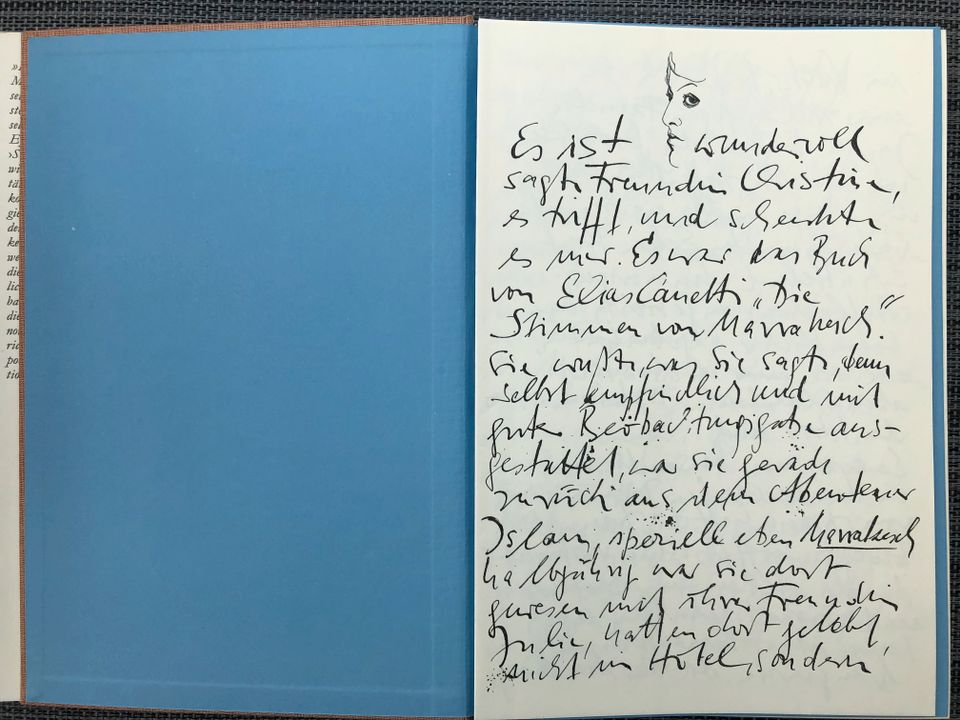 Es ist wundervoll
sagte Freundin Christine,
es trifft, und schenkte
es mir. Es war das Buch
von Elias Canetti „Die
Stimmen von Marrakesch".
Sie wußte, was sie sagte, denn
selbst empfindlich und mit
guter Beobachtungsgabe aus-
gestattet, war sie gerade
zurück aus dem Abenteuer
Islam, speziell eben Marrakesch
halbjährig war sie dort
gewesen mit ihrer Freundin
Julia, hatten dort gelebt,
nicht im Hotel, sondern